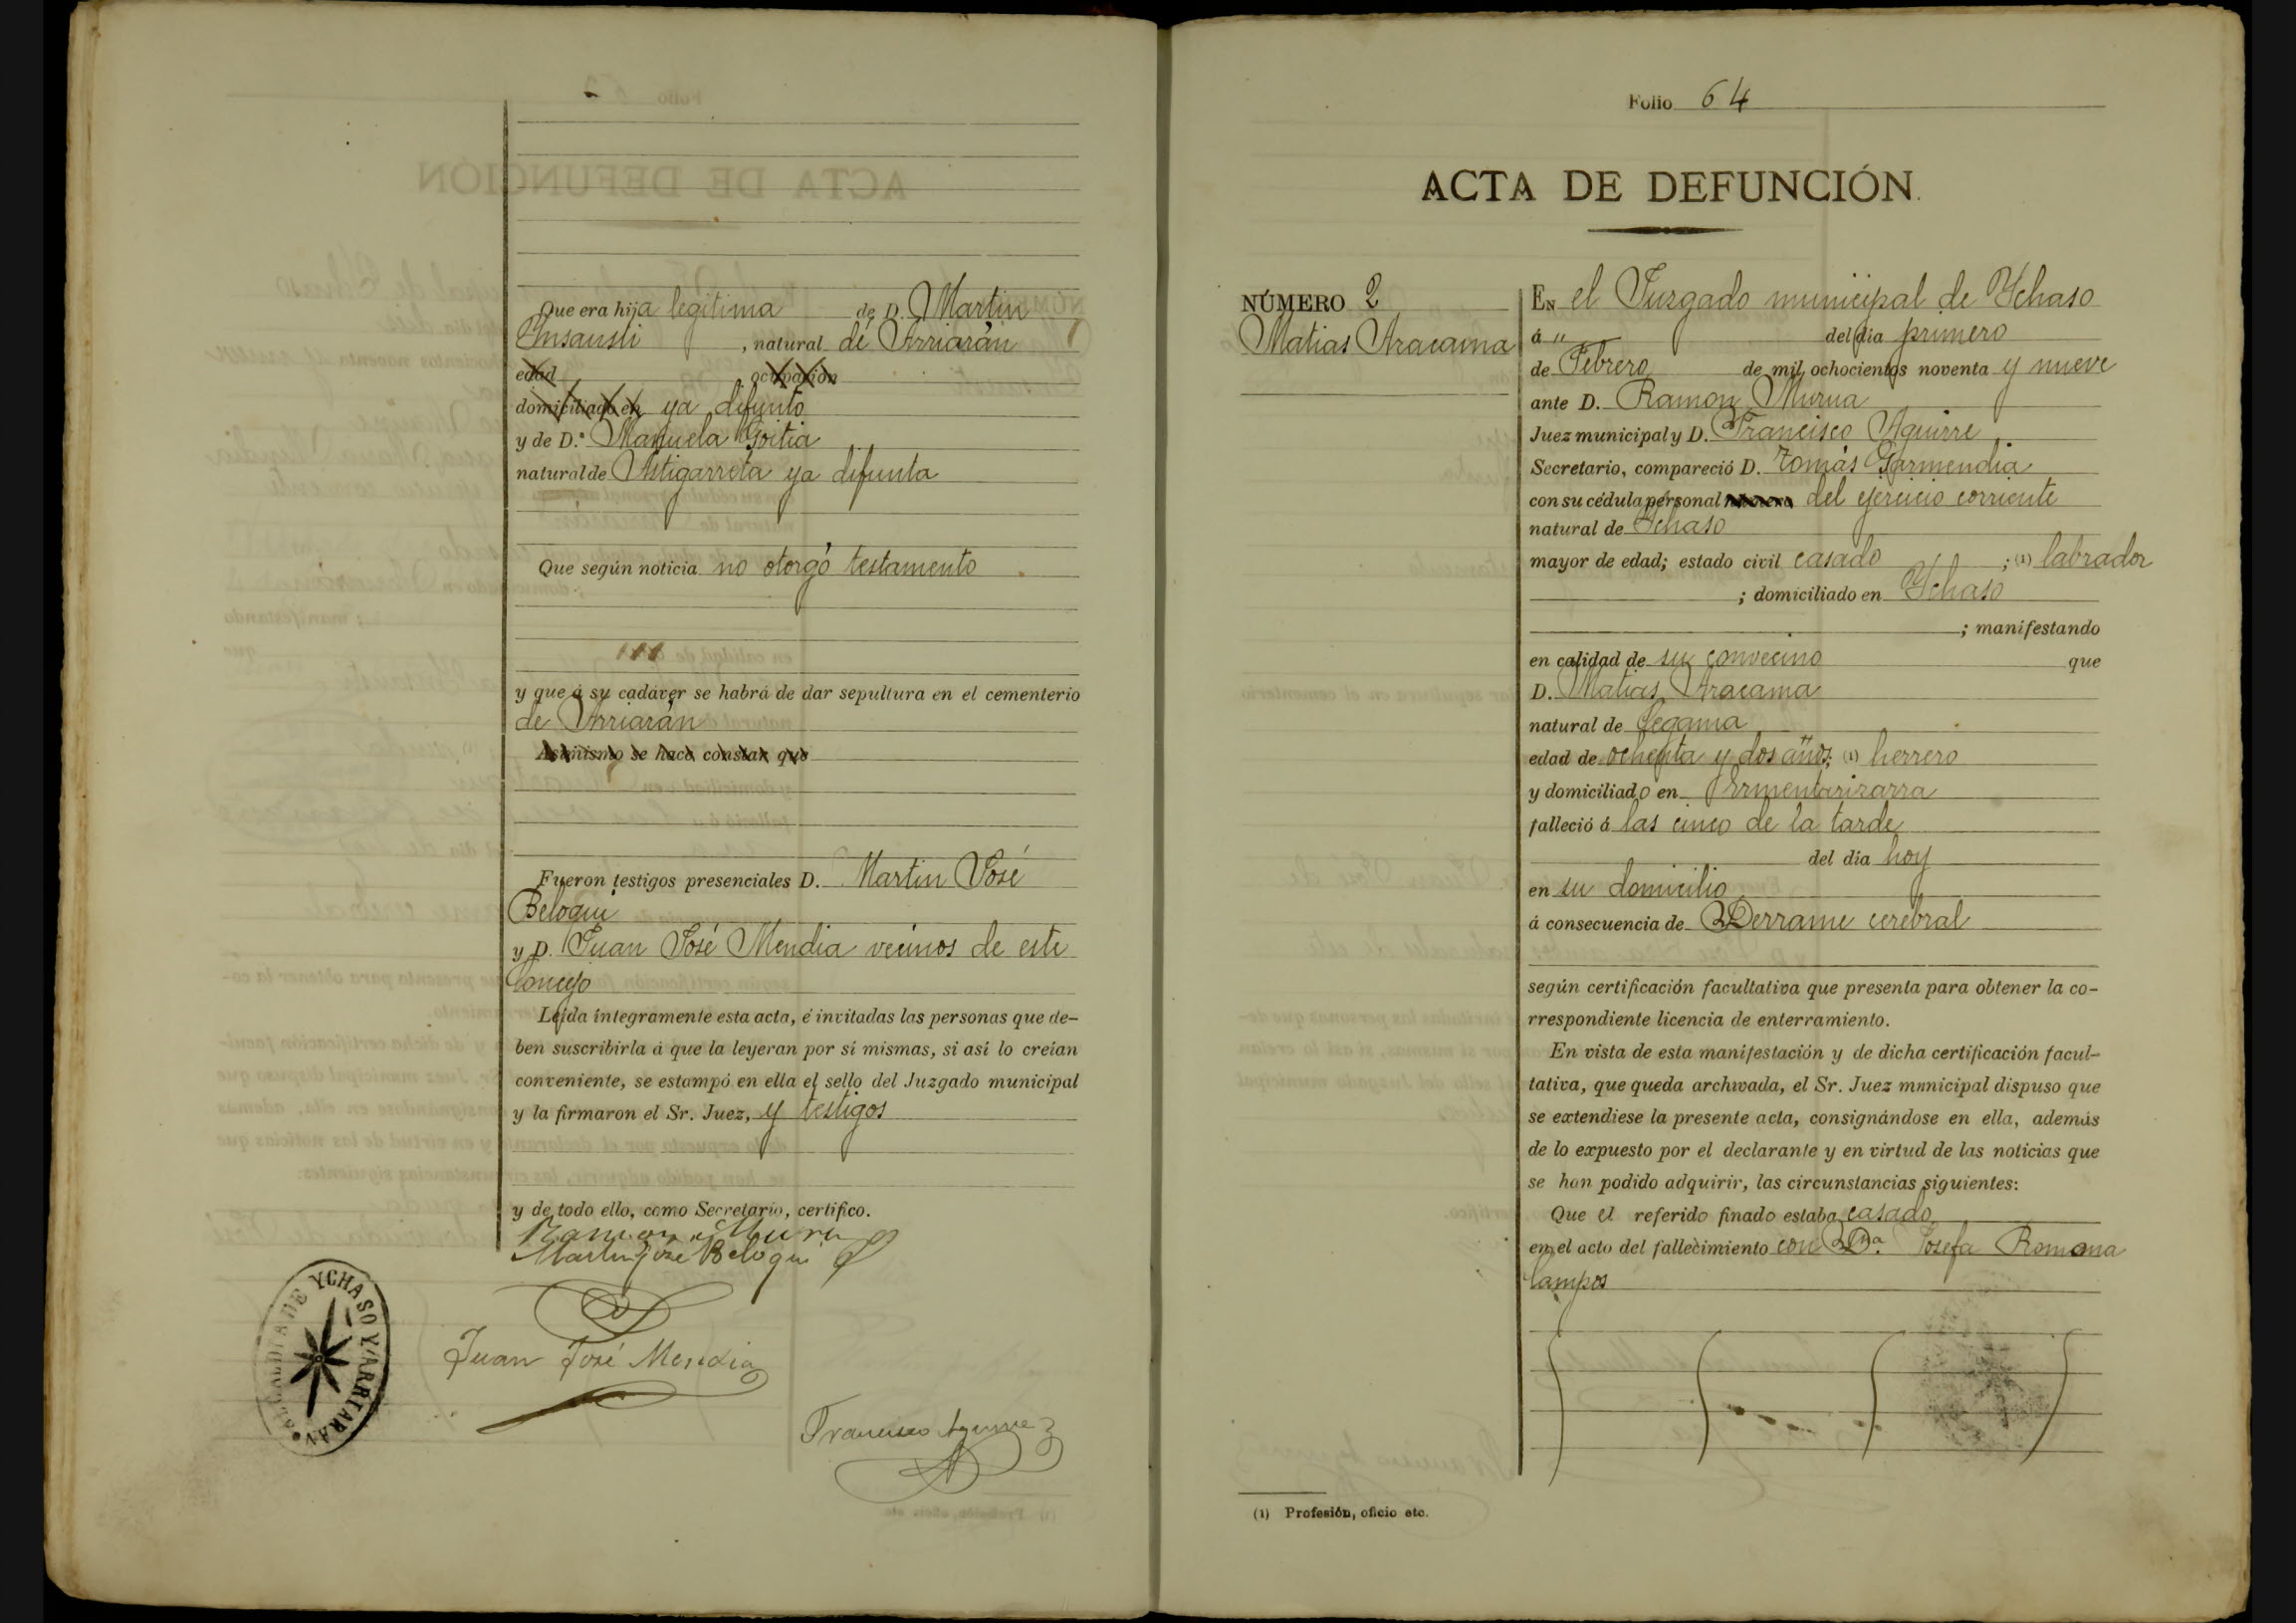 Que era hija legitima de D. Martin
Insausti, natural de Arriarán
edad ocupación
domiciliado en ya difunto
y de D.ª Manuela Goitia
natural de Astigarreta ya difunta
Que según noticia no otorgó testamento
y que á su cadáver se habrá de dar sepultura en el cementerio
de Arriarán
Asimismo se hace constar que
Fueron testigos presenciales D. Martin José
Beloqui
y D. Juan José Mendia vecinos de este
Concejo
Leída íntegramente esta acta, é invitadas las personas que de-
ben suscribirla á que la leyeran por sí mismas, si así lo creían
conveniente, se estampó en ella el sello del Juzgado municipal
y la firmaron el Sr. Juez, y testigos
y de todo ello, como Secretario, certifico.
Ramon Murua
Martin José Beloqui
Juan José Mendia
Francisco Aguirre
ALCALDIA DE YCHASO Y ARRIARAN
Folio 64
ACTA DE DEFUNCIÓN.
NÚMERO 2
Matias Aracama
EN el Juzgado municipal de Ychaso
á " del dia primero
de Febrero de mil ochocientos noventa y nueve
ante D. Ramon Murua
Juez municipal y D. Francisco Aguirre
Secretario, compareció D. Tomás Garmendia
con su cédula personal número del ejercicio corriente
natural de Ychaso
mayor de edad; estado civil casado ; (1) labrador
; domiciliado en Ychaso
; manifestando
en calidad de su convecino que
D. Matias Aracama
natural de Cegama
edad de ochenta y dos años; (1) herrero
y domiciliado en Ermentarizarra
falleció á las cinco de la tarde
del dia hoy
en su domicilio
á consecuencia de Derrame cerebral
según certificación facultativa que presenta para obtener la co-
rrespondiente licencia de enterramiento.
En vista de esta manifestación y de dicha certificación facul-
tativa, que queda archivada, el Sr. Juez municipal dispuso que
se extendiese la presente acta, consignándose en ella, además
de lo expuesto por el declarante y en virtud de las noticias que
se han podido adquirir, las circunstancias siguientes:
Que el referido finado estaba casado
en el acto del fallecimiento con Dª. Josefa Ramona
Campos
(1) Profesión, oficio etc.